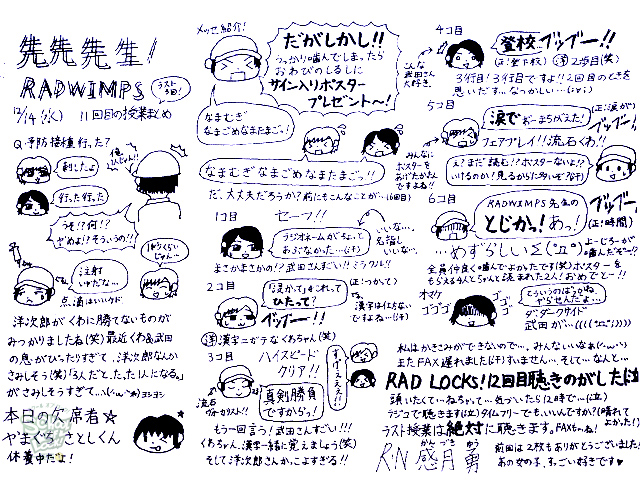 先先先生!
RADWIMPS
ラスト
3回!
12/14(水) 11回目の授業まとめ
Q.予防接種行った?
刺したよ
行った行った
俺
ひんじん!!
うそ!?何!?
やめよ!?そういうの!!
注射
いやだな…
ぼうくらい
じゃん…
点滴はいいけど
洋次郎がくわに勝てないものが
みつかりましたね(笑)最近くわ&武田
の息がぴったりすぎて…洋次郎なんか
さみしそう(笑)「3人だと、たった1人になる。」
がさみしすぎて…
ヨシヨシ
本日の欠席者☆
やまぐち さとしくん
休養中だよ!
メッセ紹介!
だがしかし!!
うっかり噛んでしまったら
おわびのしるしに
サイン入りポスター
プレゼント〜!
なまむぎ
なまごめなまたまごっ!
なまむぎなまごめなまたまごっ!
みんなに
ポスターを
あげたかったん
ですよね!!
だ、大丈夫だろうか?前にもこんなことが…(6回目)
1コ目 セーフ!!
ラジオネームがちょっと
あぶなかった…(汗)
いいな…
名指し
いいな…
まさかまさかの!?武田さんすごい!!ミラクル!!
2コ目
「泣かって」これって
ひたって?
ブッブー!!
(正:つかって)
ね、
漢字は仕方ない
ですよね…(汗)
(洋)漢字ニガテなくわちゃん(笑)
3コ目 ハイスピード
クリア!!
流石
ヴォーカリスト!!
真剣勝負
ですからっ!
もう一回言う!武田さんすごい!!!
くわちゃん、漢字一緒に覚えましょう(笑)
そして洋次郎さんかっこよすぎる!!
4コ目
こんな
武田さん
大好き。
登校 ブッブー!!
(正:登下校) (洋)2行目(笑)
3行目!3行目ですよ!!2回目のときを
思いだす…なつかしい…(汗)
5コ目
涙でおーまちがえた!
(正:涙が)
ブッブー!
フェアプレイ!!流石くわ!!
え?まだ読む!?ポスターないよ!?
いけるのか!見るからに多いぞ?(汗)
6コ目
RADWIMPS先生の
とじかっ!あっ!
ブッブー!
(正:時間)
…めずらしいΣ(°Д°)
よーじろーが
噛んだぞ〜!?
全員仲良く噛んでよかったです(笑)ポスターを
もらえる4人とちゃんと流された2人!おめでとー!!
オマケ
ゴゴゴ
ゴゴゴ
どういうのはうかね、
やらせんだよ…
ダークサイド
武田が…
私はかきこみができないので…、みんないいなぁ
またFAX遅れました(汗)すいません…。そして…なんと…
RAD LOCKS!12回目聴きのがした泣
頭いたくて…ねちゃって…気づいたら12時で…(泣)
ラジコで聴きます(泣)タイムフリーでもいいんですか?(晴れて
よかった!)
ラスト授業は絶対に聴きます。FAXもね!
R.N 感月勇
かんづき ゆう
前回は2枚もありがとうございました!
あの女の子、すっごい好きです♥